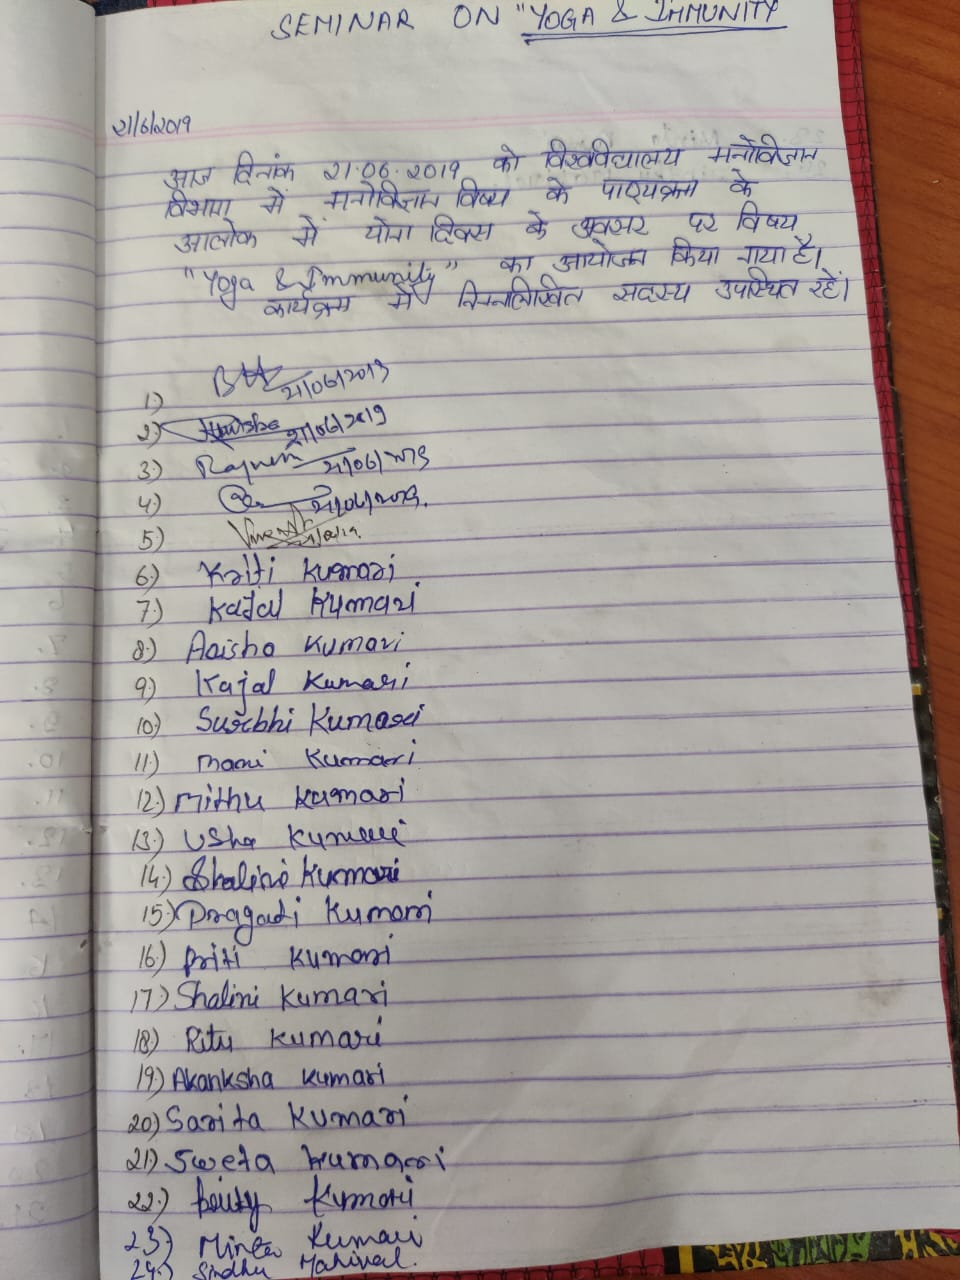 SEMINAR ON "YOGA & IMMUNITY
21/6/2019
आज दिनांक 21.06.2019 को विश्वविद्यालय मनोविज्ञान
विभाग में मनोविज्ञान विषय के पाठ्यक्रम के
आलोक में योगा दिवस के अवसर पर विषय
"Yoga & Immunity" का आयोजन किया गया है।
कार्यक्रम में निम्नलिखित सदस्य उपस्थित रहें।
1) 21/06/2019
2) 21/06/2019
3) 21/06/2019
4) 21/06/2019.
5)
6) Kriti Kumari
7) Kajal Kumari
8) Aaisha Kumari
9) Kajal Kumari
10) Surbhi Kumari
11) mani Kumari
12) Mithu Kumari
13) Usha Kumari
14) Shalini Kumari
15) Pragati Kumari
16) Priti Kumari
17) Shalini Kumari
18) Ritu Kumari
19) Akanksha Kumari
20) Sarita Kumari
21) Sweta Kumari
22) Kumari
23) Minta Kumari
24) Sindhu